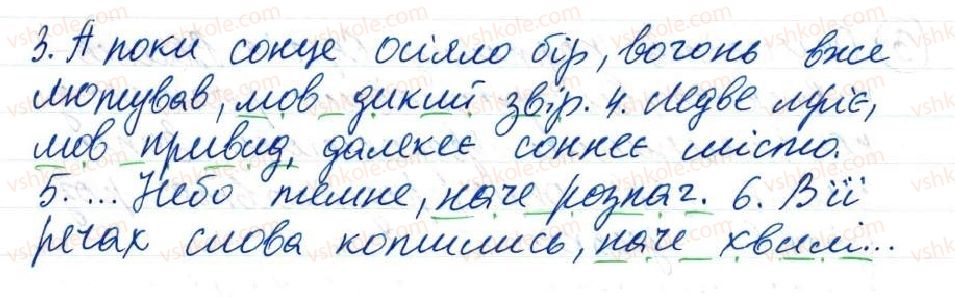 3. А поки сонце осіяло бір, вогонь вже
лютував, мов дикий звір. 4. Ледве мріє,
мов привид, далекеє соннеє місто.
5. ... Небо темне, наче розпач. 6. В її
речах слова котились, наче хвилі...